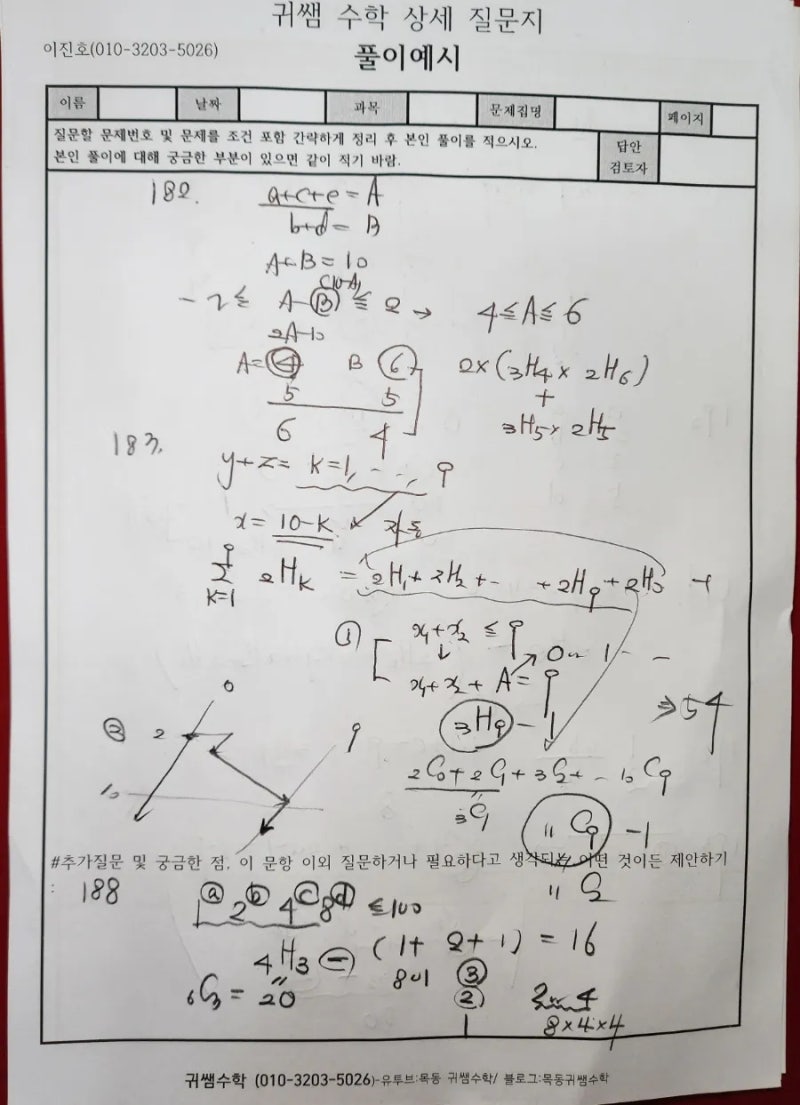 귀쌤 수학 상세 질문지
이진호(010-3203-5026)
풀이예시
이름 날짜 과목 문제집명 페이지
질문할 문제번호 및 문제를 조건 포함 간략하게 정리 후 본인 풀이를 적으시오.
본인 풀이에 대해 궁금한 부분이 있으면 같이 적기 바람.
답안
검토자
182. a+c+e = A
b+d = B
A+B = 10
(10-A)
-2 ≤ A-B ≤ 2 → 4 ≤ A ≤ 6
2A-10
A= 4 B 6 2×(3H4 × 2H6)
5 5 +
6 4 3H5 × 2H5
183. y+z = k=1, - -, 9
x = 10-k 자동
9
Σ 2Hk = 2H1 + 2H2 + - + 2H9 + 2H0 -1
k=1
① x1+x2 ≤ 9
x1+x2 + A = 9 0 ~ 1 - -
3H9 - 1 ⇒ 54
② 2 0 9
10
2C0 + 2C1 + 3C2 + - 10C9
3C1
11C9 - 1
#추가질문 및 궁금한 점, 이 문항 이외 질문하거나 필요하다고 생각되는 어떤 것이든 제안하기
:
11C2
188 1ⓐ 2ⓑ 4ⓒ 8ⓓ ≤ 100
4H3 - (1+2+1) = 16
6C3 = 20 8이 ③
②
1
2 4
8×4×4
귀쌤수학 (010-3203-5026)-유투브:목동 귀쌤수학/ 블로그:목동귀쌤수학